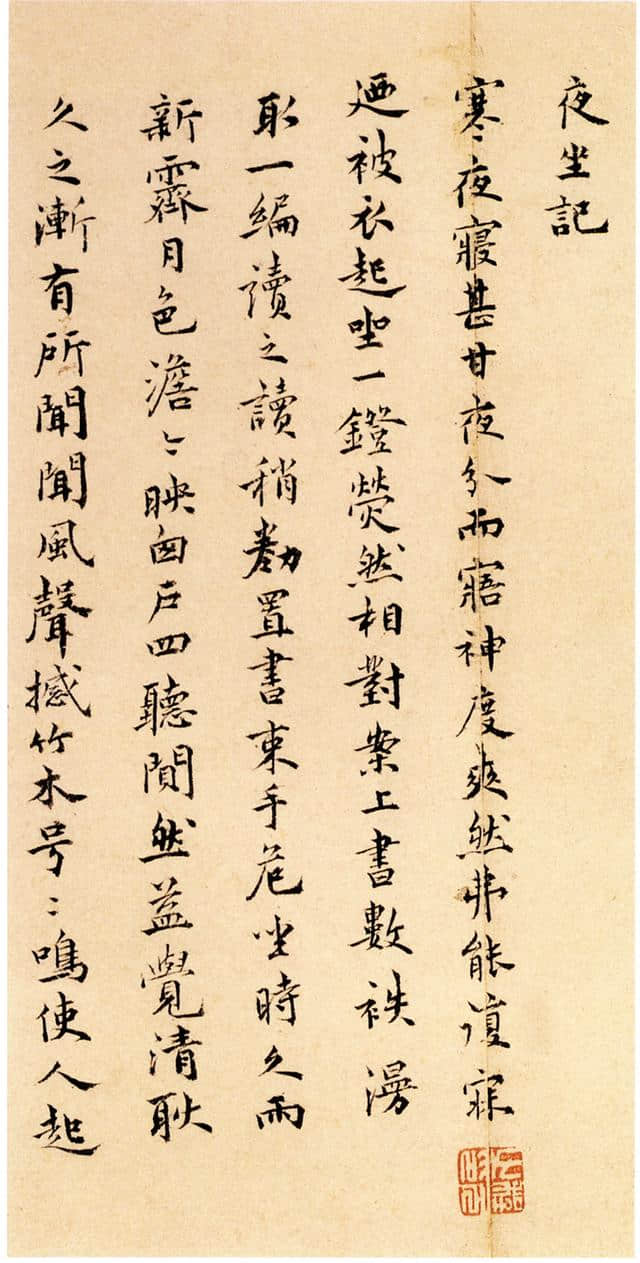 夜坐記
寒夜寢甚甘夜分而寤神度爽然弗能復寐
廼被衣起坐一鐙熒然相對案上書數袟漫
取一編讀之讀稍勌置書束手危坐時久雨
新霽月色澹〻映囱戶四聽閴然葢覺清耿
久之漸有所聞聞風聲撼竹木号〻鳴使人起